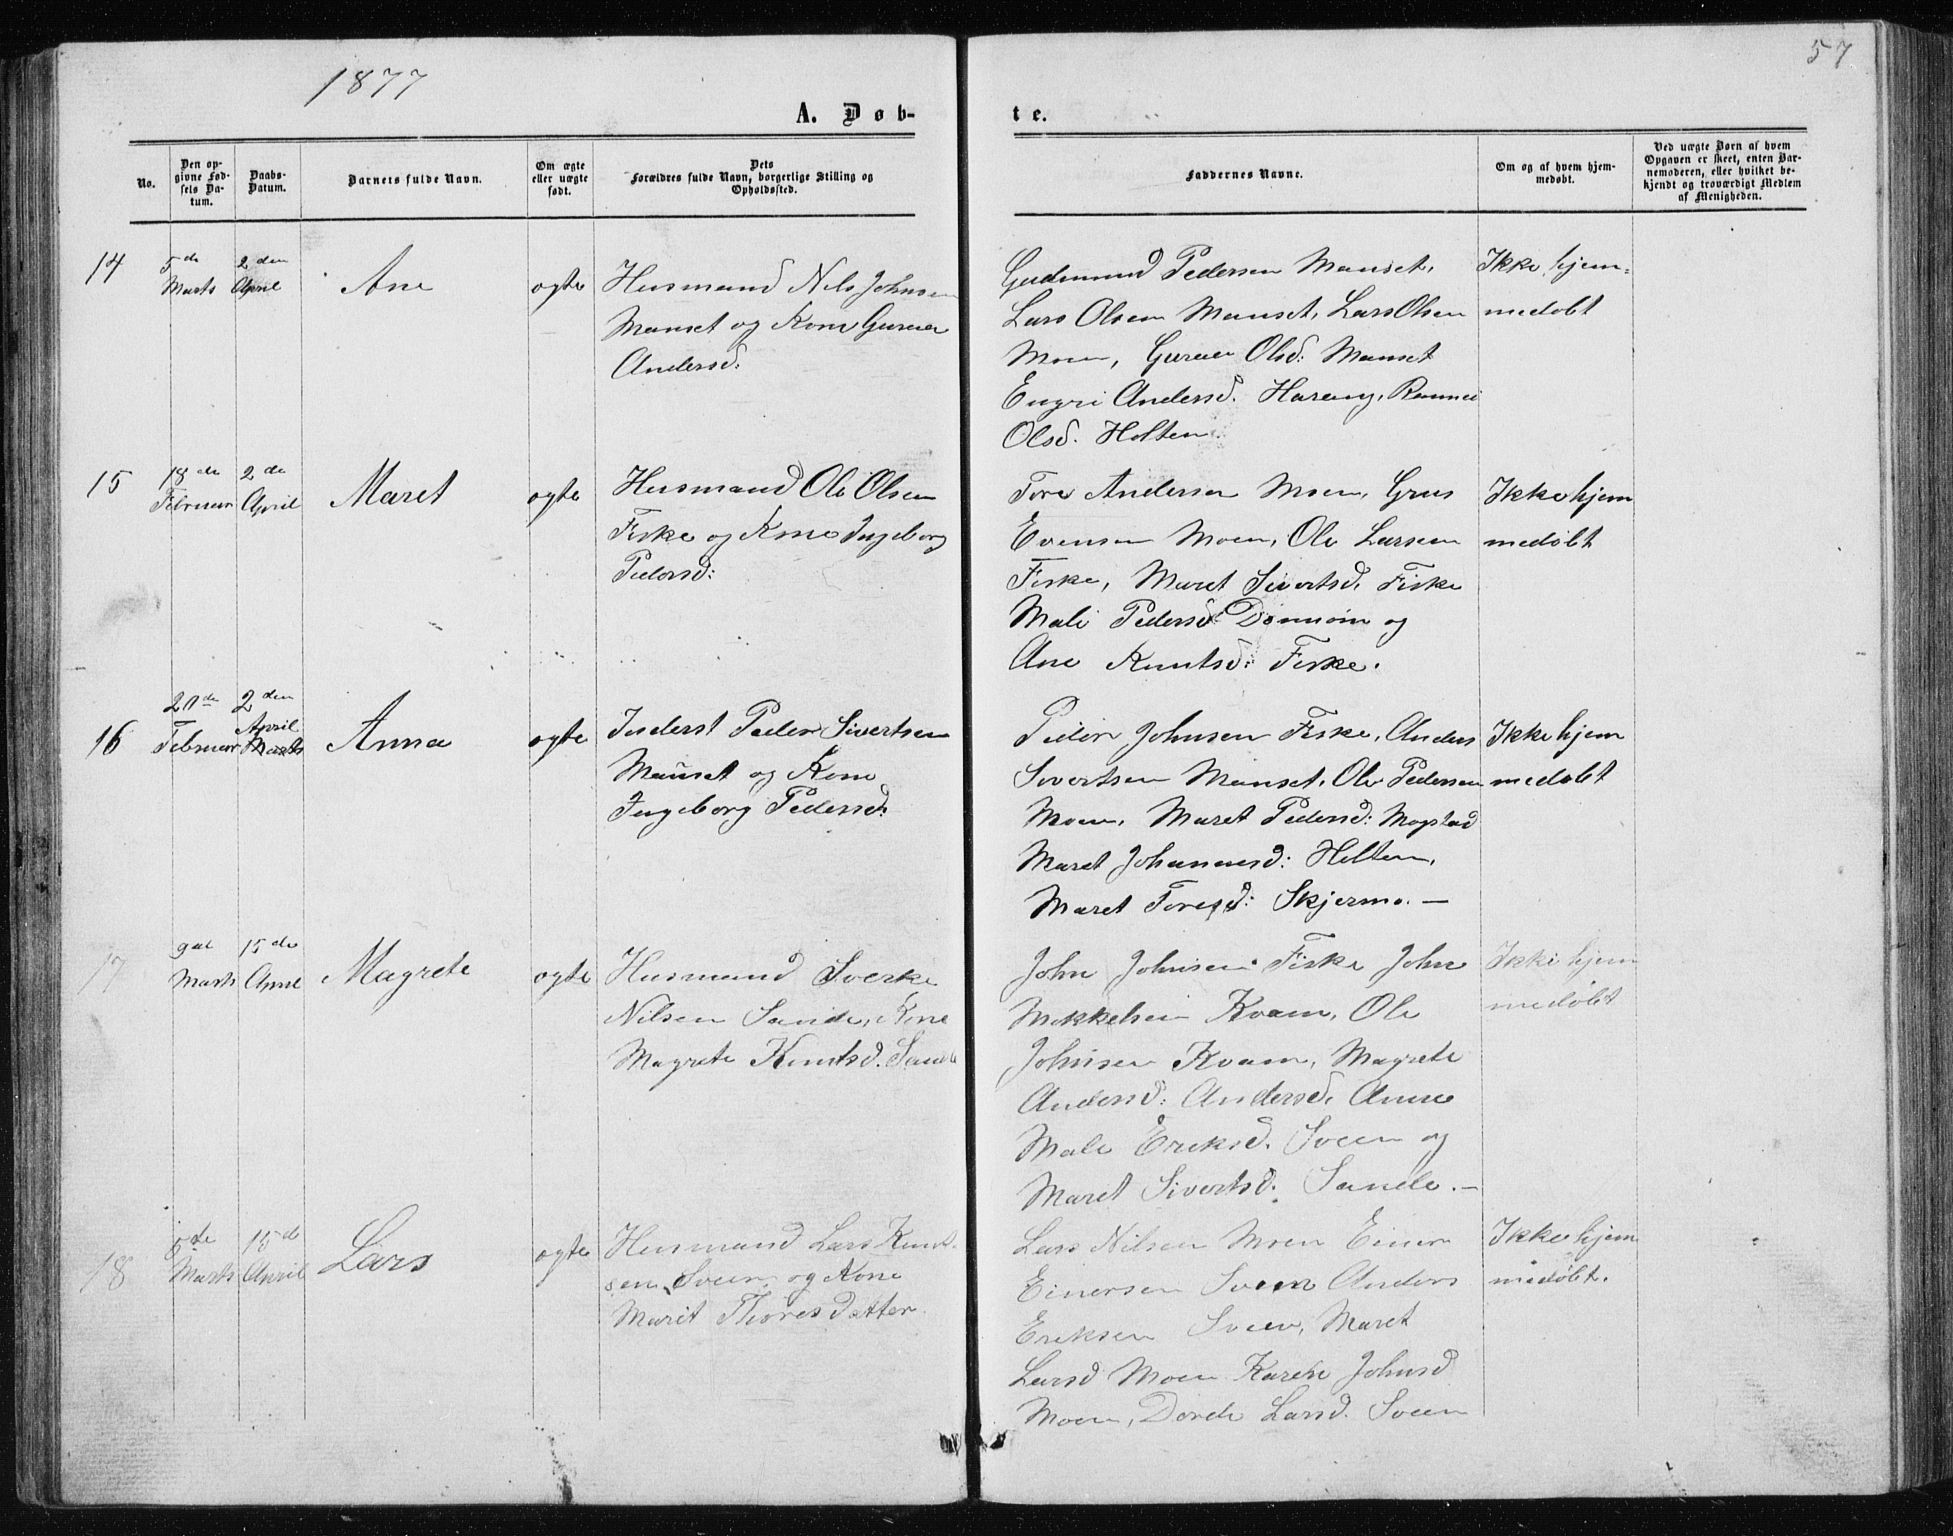 1877
57
A. Døb-
te.
No.
Den op-
givne Fød-
sels Da-
tum.
Daabs-
Datum.
Barnets fulde Navn.
Om ægte
eller uægte
født.
Dets
Forældres fulde Navn, borgerlige Stilling og
Opholdssted.
Faddernes Navne.
Om og af hvem hjem-
medøbt.
Ved uægte Børn af hvem
Opgaven er skeet, enten Bar-
nemoderen, eller hvilket be-
kjendt og troværdigt Medlem
af Menigheden.
14
5de
Marts
2den
April
Ane
ogte
Husmand Nils Johnsen
Manset og Kone Guruer
Andersd:
Gudmund Pedersen Manset,
Lars Olsen Manset, Lars Olsen
Moen, Guruer Olsd: Manset
Engri Andersd. Harang,
Olsd. Holten.
Ikke hjem=
medøbt
15
18de
Februar
2de
April
Maret
ogte
Husmand Ole Olsen
Fiske og Kone Ingeborg
Pedersd:
Tore Andersen Moen,
Evensen Moen, Ole Larsen
Fiske, Maret Sivertsd. Fiske
Mali Pedersd: og
Ane Knutsd: Fiske.
Ikke hjem
medøbt
16
20de
Februar
2den
April
Marts
Anna
ogte
Inderst Peder Sivertsen
Manset og Kone
Ingeborg Pedersd:
Peder Johnsen Fiske, Anders
Sivertsen Manset, Ole Pedersen
Moen, Maret Pedersd: Mogstad
Maret Johannesd: Holten,
Maret Toresd: Skjermo. —
Ikke hjem
medøbt
17
9de
Marts
15de
April
Magrete
ogte
Husmand Sverke
Nilsen Sande, Kone
Magrete Knutsd. Sande
John Johnsen Fiske John
Mikkelsen Kvam, Ole
Johnsen Kvam, Magrete
Andersd: Andersd, Anne
Mali Eriksd. Sveen og
Maret Sivertsd: Sande. —
Ikke hjem
medøbt
18
Marts
15d
April
Lars
ogte
Husmand Lars Knut-
sen Sveen, og Kone
Marit Thoresdatter
Lars Nilsen Moen Einer
Einersen Sveen Anders
Eriksen Sveen, Maret
Larsd Moen Karen Johnsd
Moen, Dorde Larsd. Sveen
Ikke hjem
medøbt.